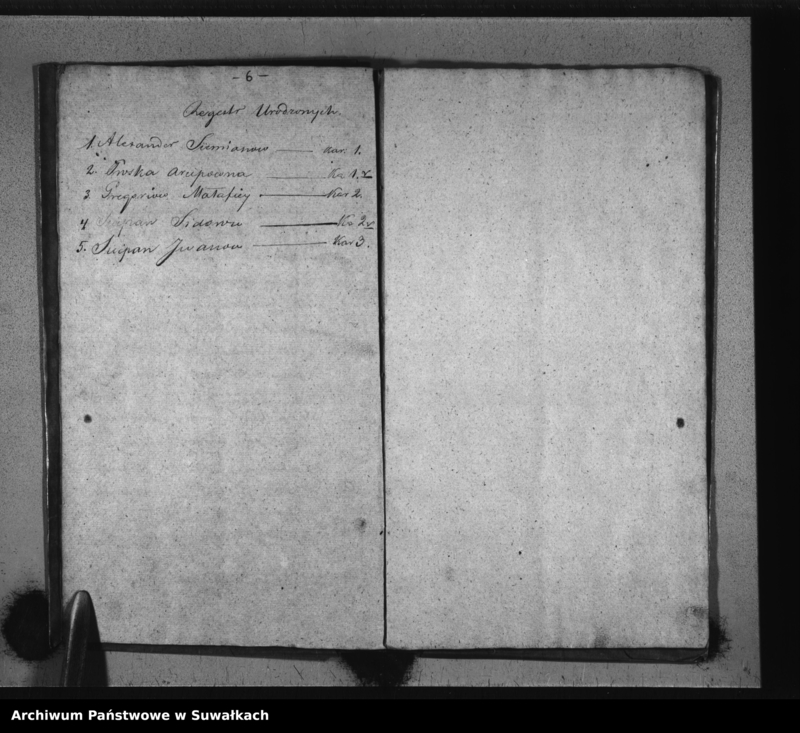 - 6 -
Regestr Urodzonych.
1. Alexander Siemianow kar. 1.
2. Proska Kar 1. v
3. Gregoriew Matafiey Kar 2.
4 Sciepan Sidorow Kar 2 v
5. Sciepan Jwanow Kar 3.
Archiwum Państwowe w Suwałkach